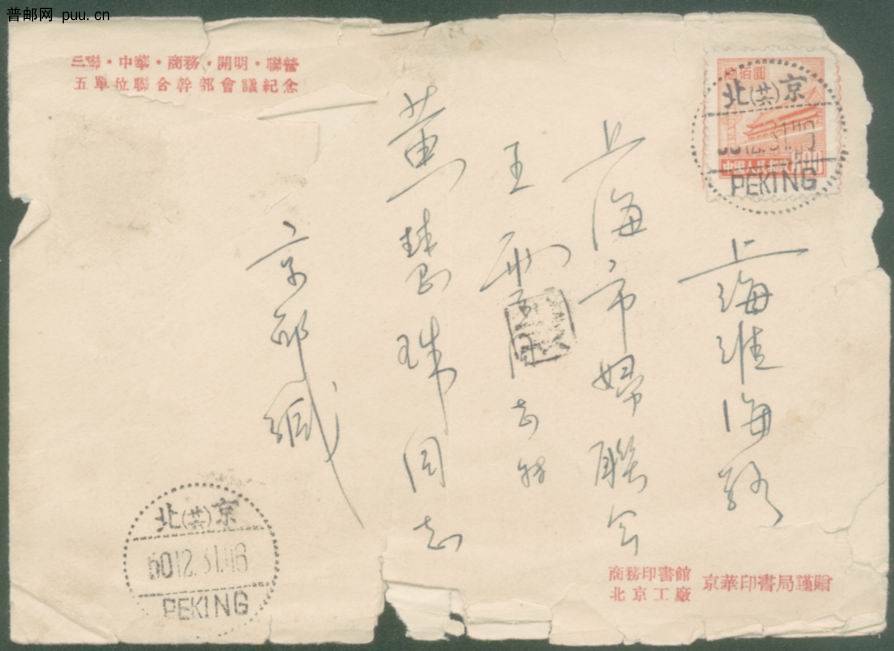 普邮网 puu.cn
三聯・中華・商務・開明・聯營
五單位聯合幹部會議紀念
佰圓
北(共)京
50 12.31.18
PEKING
上海淮海路
上海市婦聯会
王
同志转
黄慧珠同志
京邱缄
北(共)京
50 12.31.18
PEKING
商務印書館
北京工廠
京華印書局謹贈